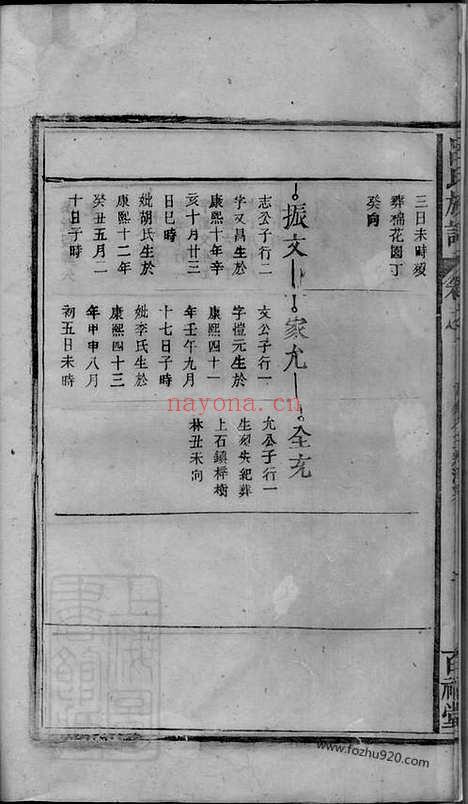 三日未時歿
葬棉花園丁
癸向
振文
家允
全充
志公子行二
字文昌生於
康熙十年辛
亥十月廿三
日巳時
妣胡氏生於
康熙十二年
癸丑五月二
十日子時
文公子行一
字愷元生於
康熙四十一
年壬午九月
十七日子時
妣李氏生於
康熙四十三
年甲申八月
初五日未時
允公子行一
生歿失紀葬
上石鎮梓樹
林丑未向
氏族譜
百福堂
nayona.cn
www.fozhu920.com